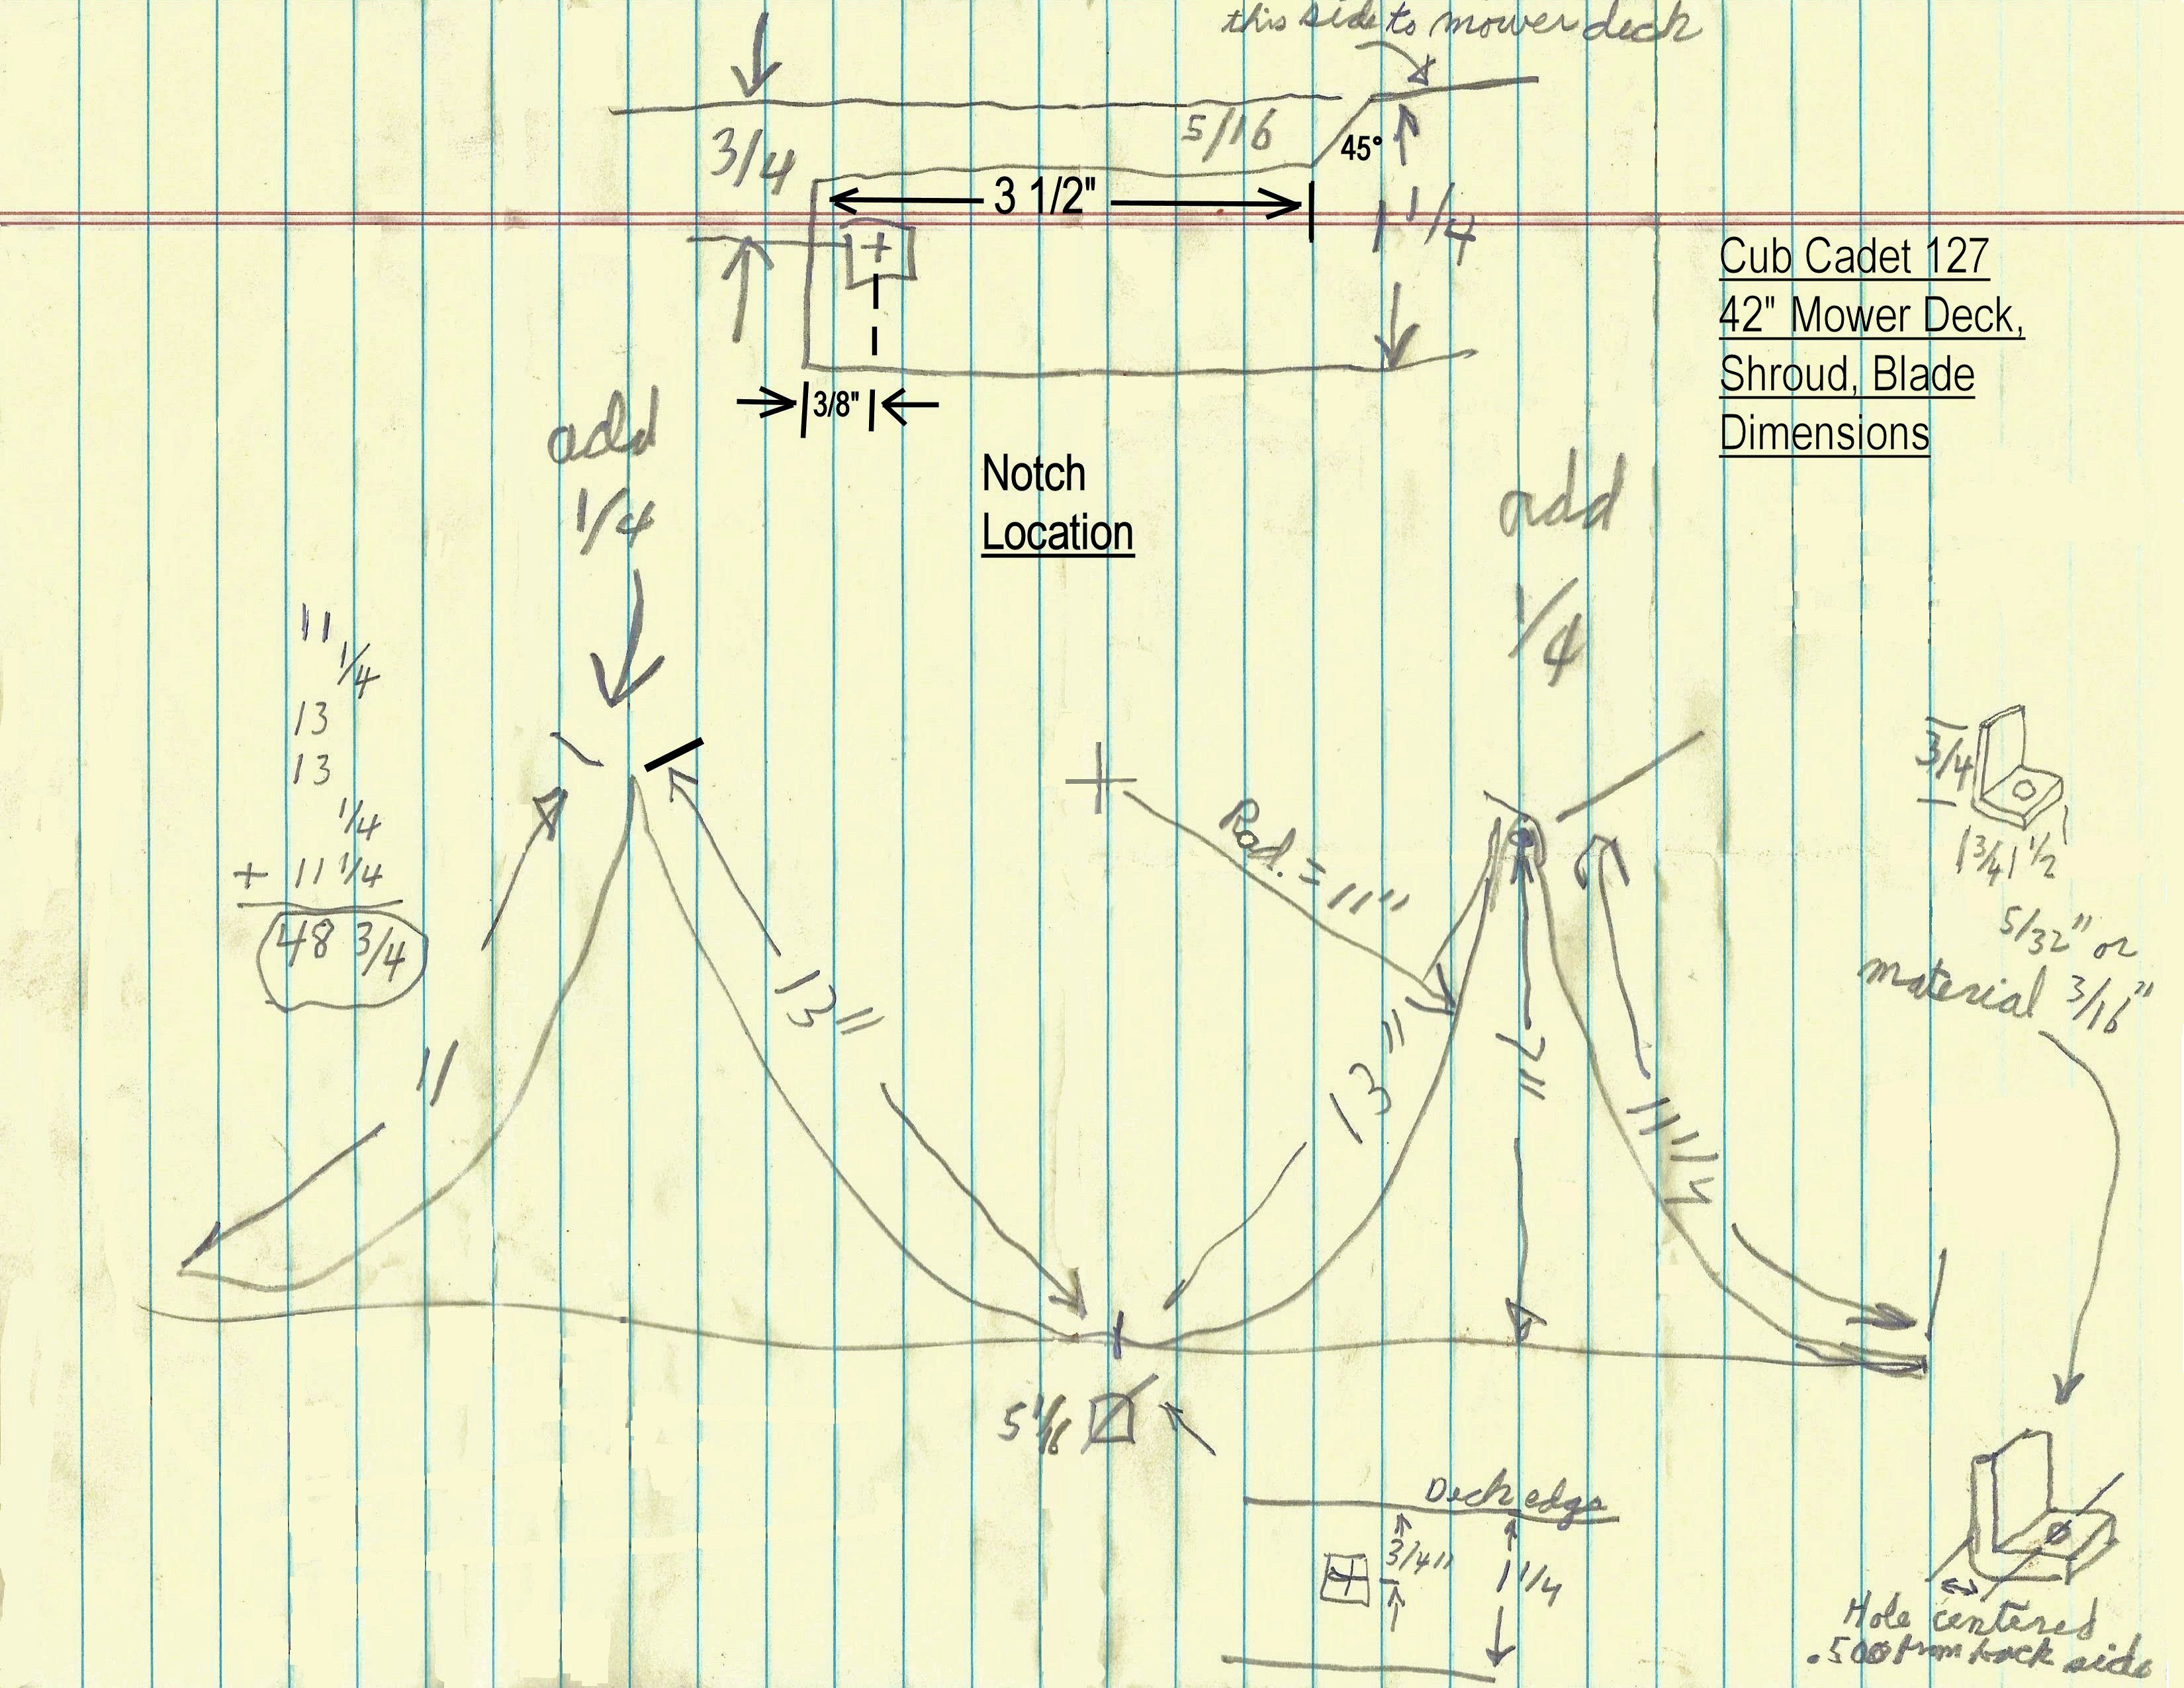 this side to mower deck
3/4
5/16
45°
3 1/2"
1 1/4
3/8"
Cub Cadet 127
42" Mower Deck,
Shroud, Blade
Dimensions
add
1/4
Notch
Location
add
1/4
11
1/4
13
13
1/4
+ 11 1/4
48 3/4
Rad. = 11"
3/4
1 3/4 1 1/2
5/32" or
material 3/16"
11
13"
13"
7"
11"
Deck edge
3/4"
1 1/4
Hole centered
.500 from back side